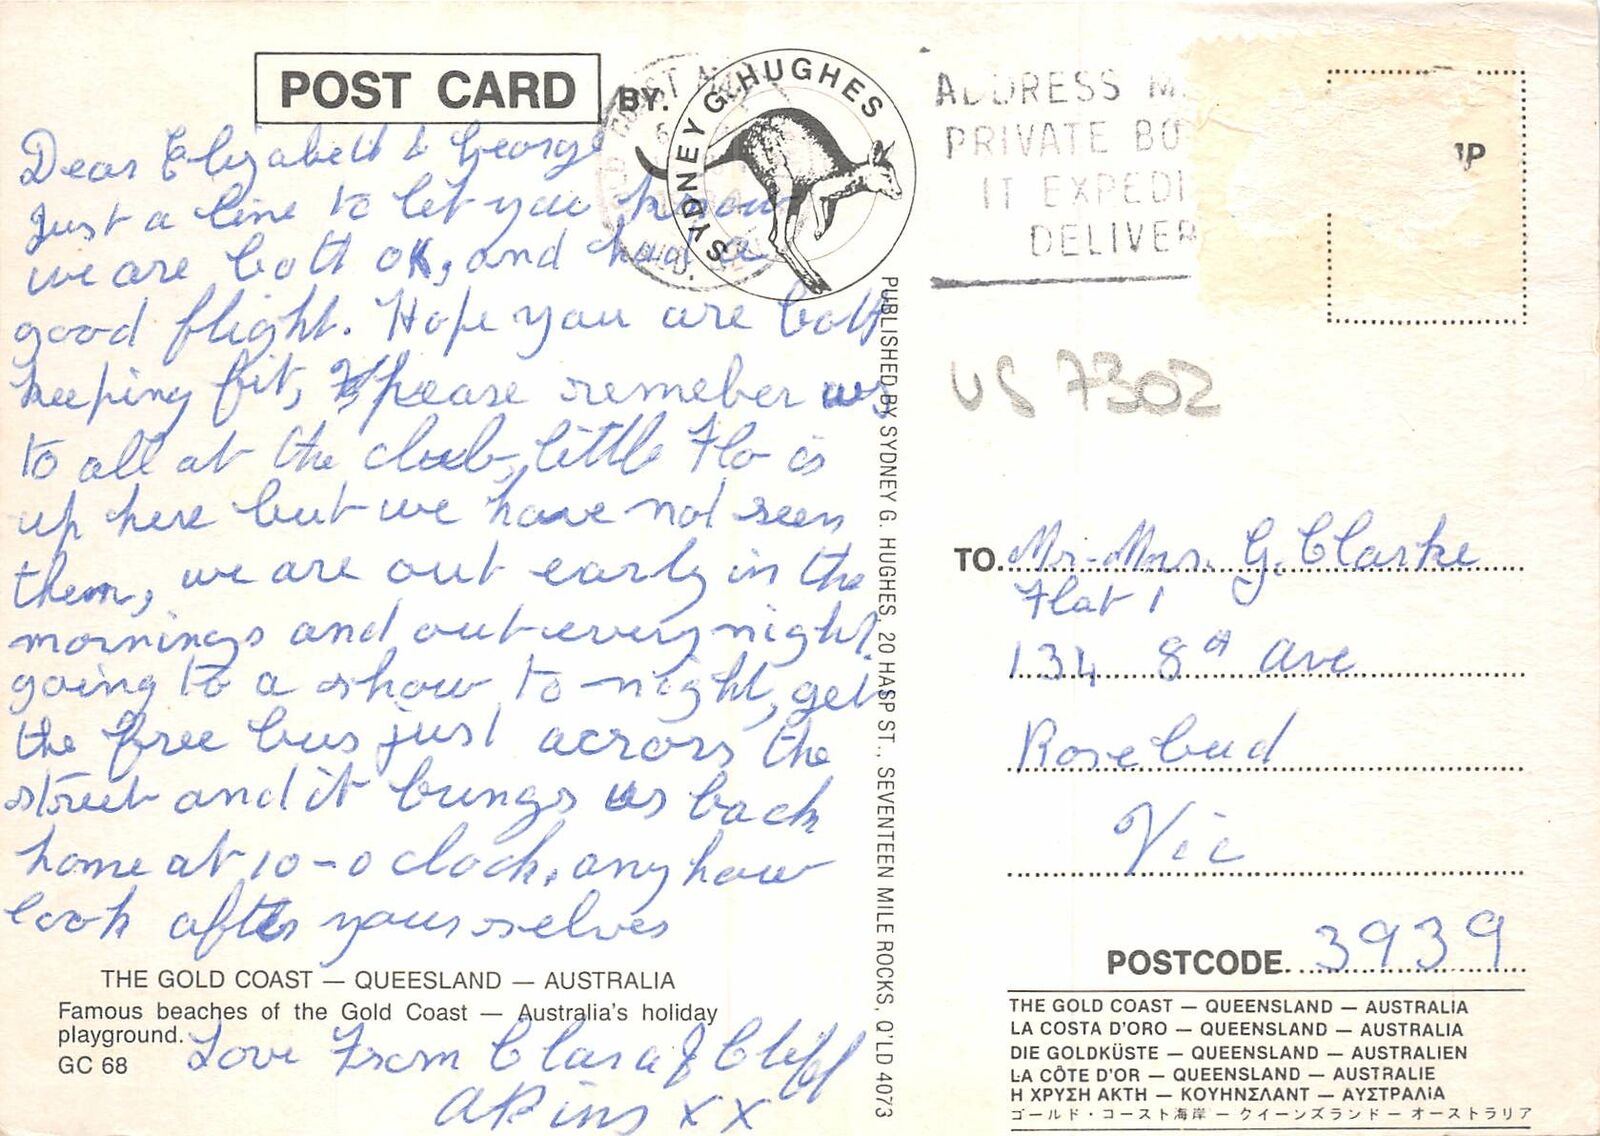 POST CARD
BY. SYDNEY G. HUGHES
Dear Elizabeth & George
Just a line to let you know
we are both ok, and had a
good flight. Hope you are both
keeping fit, please remeber us
to all at the club, little Flo is
up here but we have not seen
them, we are out early in the
mornings and out every night.
going to a show to-night, get
the free bus just across the
street and it brings us back
home at 10-o clock, anyhow
look after yourselves
THE GOLD COAST — QUEESLAND — AUSTRALIA
Famous beaches of the Gold Coast — Australia's holiday
playground.
GC 68
Love From Clara & Cliff
AKins XX
PUBLISHED BY SYDNEY G. HUGHES, 20 HASP ST., SEVENTEEN MILE ROCKS, Q'LD 4073
ADDRESS M
PRIVATE BO
IT EXPEDI
DELIVER
US 7302
TO. Mr-Mrs. G. Clarke
Flat 1
134 8th Ave
Rosebud
Vic
POSTCODE 3939
THE GOLD COAST — QUEENSLAND — AUSTRALIA
LA COSTA D'ORO — QUEENSLAND — AUSTRALIA
DIE GOLDKÜSTE — QUEENSLAND — AUSTRALIEN
LA CÔTE D'OR — QUEENSLAND — AUSTRALIE
Η ΧΡΥΣΗ ΑΚΤΗ — ΚΟΥΗΝΣΛΑΝΤ — ΑΥΣΤΡΑΛiΑ
ゴールド・コースト海岸 — クイーンズランド — オーストラリア